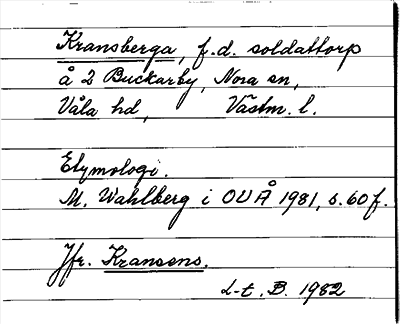 Kransberga, f.d. soldattorp
å 2 Buckarby, Nora sn,
Våla hd, Västm. l.
Etymologi.
M. Wahlberg i OUÅ 1981, s. 60 f.
Jfr. Kransens.
L-t. B. 1982